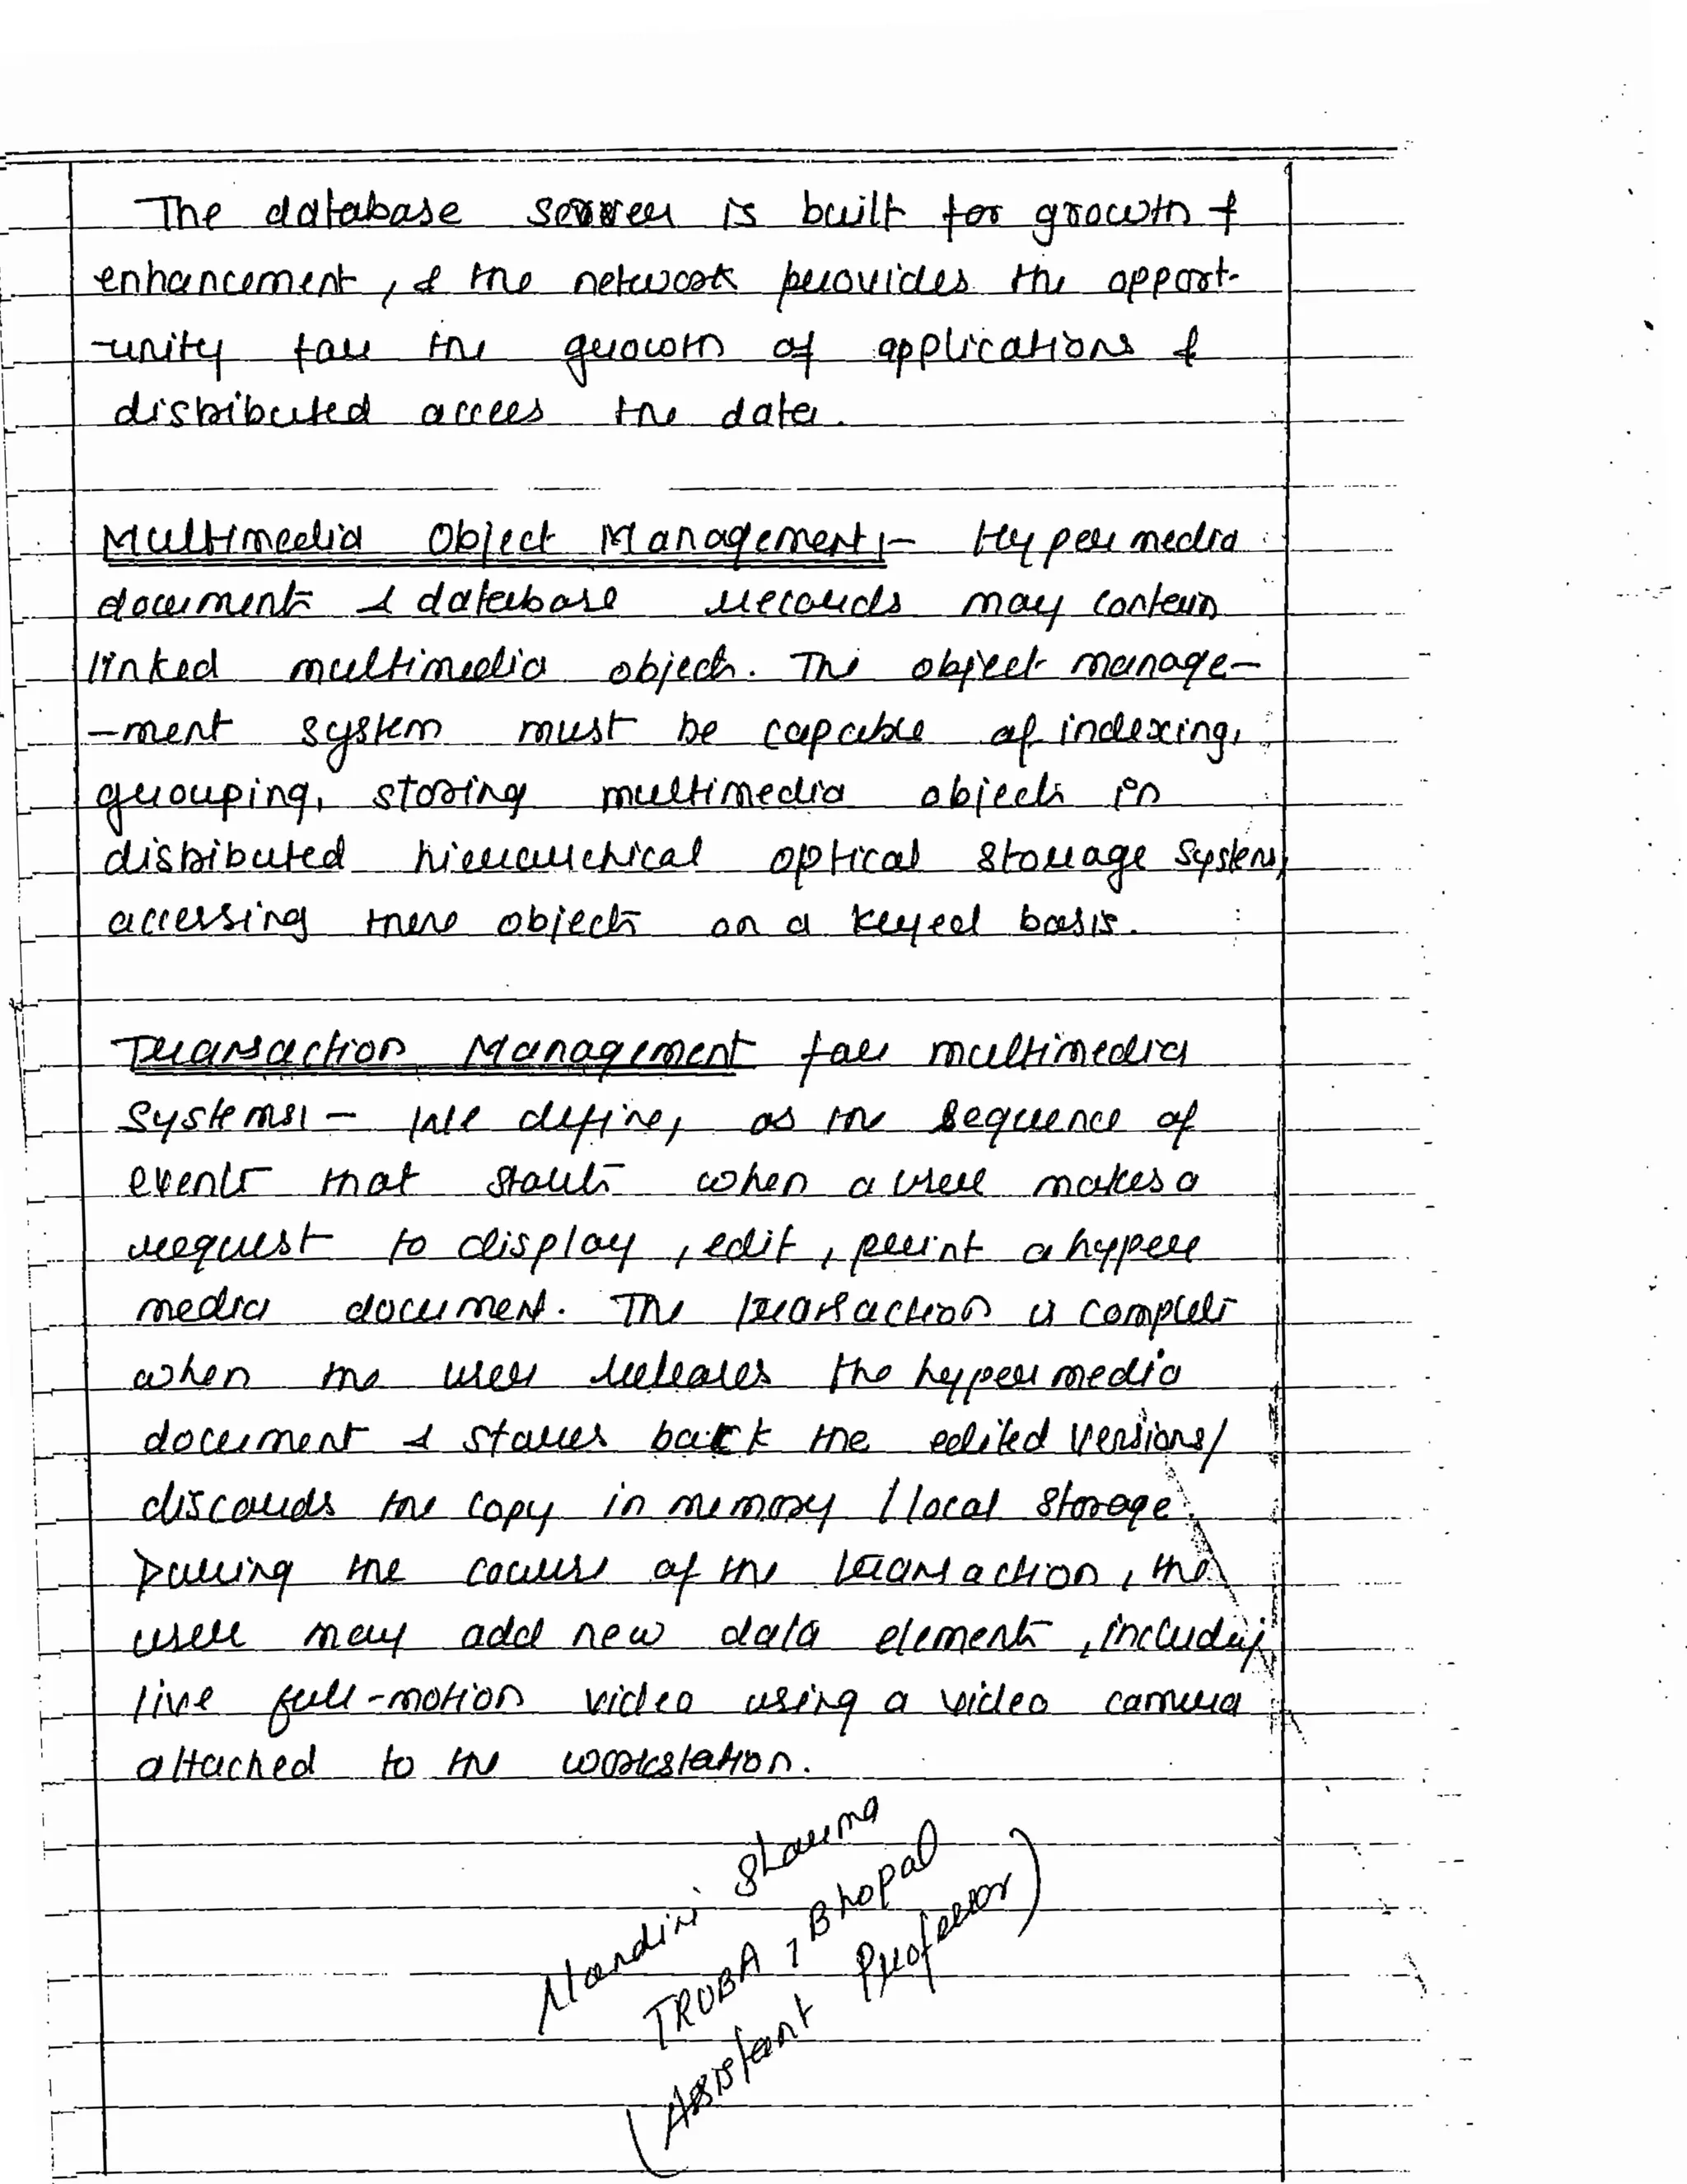 The database server is built for growth &
enhancement, & the network provides the opport-
-unity for the growth of applications &
distributed accees the data.
Multimedia Object Management:- Hyper media
documents & database records may contain
linked multimedia objects. The object manage-
-ment system must be capable of indexing,
grouping, storing multimedia objects in
distributed hierarchical optical storage systems,
accessing these objects on a keyed basis.
Transaction Management for multimedia
Systems:- We define, as the sequence of
events that starts when a user makes a
request to display, edit, print a hyper
media document. The transaction is complete
when the user releases the hyper media
document & stores back the edited versions/
discards the copy in memory / local storage.
During the course of the transaction, the
user may add new data elements, including
live full-motion video using a video camera
attached to the workstation.
Nandini Sharma
TRUBA, Bhopal
(Assistant Professor)